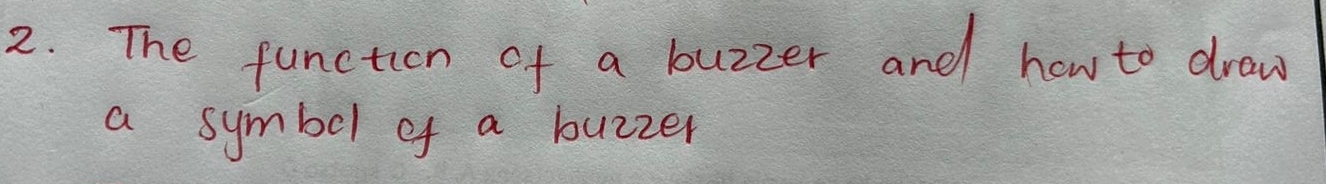 2. The function of a buzzer and how to draw
a symbol of a buzzer